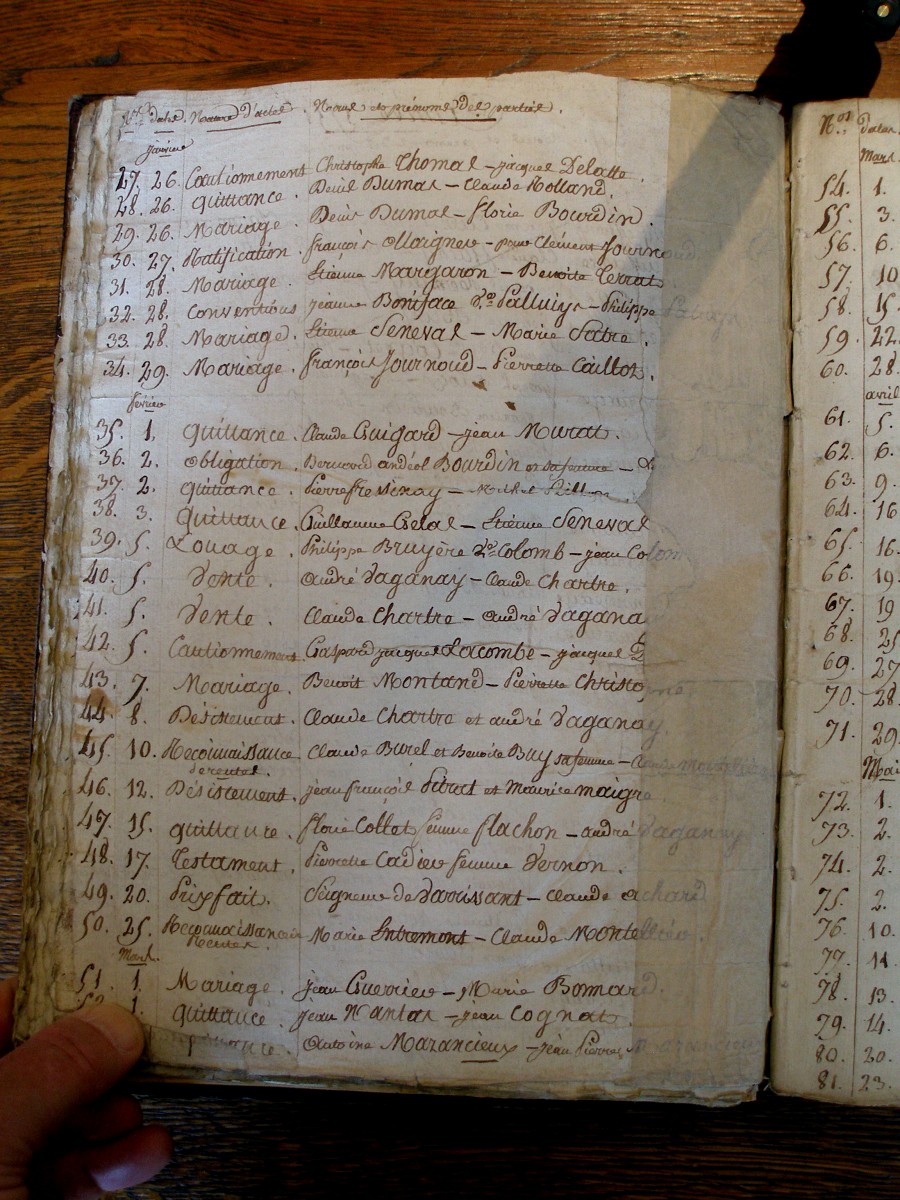 Nos. dates. Nature d'actes. Noms et prénoms des parties.
janvier
27. 26. Cautionnement Christophe Thomas – jacques Delotte.
28. 26. Quittance. Denis Dumas – Claude Rolland.
29. 26. Mariage. Denis Dumas – florie Bourdin.
30. 27. Ratification. françois Maignes – Clément Journoud
31. 28. Mariage. Etienne Marigaron – Benoite Terrat
32. 28. Conventions jeanne Boniface Palluiys – Philippe
33. 28. Mariage. Etienne Seneval – Marie Satre.
34. 29. Mariage. françois Journoud – Pierrette Caillot.
février
35. 1. Quittance. Claude Guigard – jean Murat.
36. 2. Obligation. Bernard andéol Bourdin et sa femme –
37. 2. Quittance. Pierre fressinay – Michel
38. 3. Quittance. Guillaume Gelas – Etienne Seneval
39. 5. Louage. Philippe Bruyère Colomb – jean Colom
40. 5. Vente. andré Vaganay – Claude Chartre.
41. 5. Vente. Claude Chartre – andré Vagana
42. 5. Cautionnement. Gaspard jacques Lacombe – jacques
43. 7. Mariage. Benoit Montand – Pierrette Christo
44. 8. Désistement. Claude Chartre et andré Vaganay
45. 10. Reconnaissance Claude Burel et Benoite Buy sa femme –
de rentes.
46. 12. Désistement. jean françois Pitrat et Maurice maigre
47. 15. Quittance. florie Collet femme flachon – andré Vaganay
48. 17. Testament. Pierrette Cadier femme Vernon.
49. 20. Prixfait. Seigneur de Varissant – Claude achard
50. 25. Reconnaissance Marie Entremont – Claude Montellier.
Rentes.
Mars.
51. 1. Mariage. jean Guerrier – Marie Bomard.
52. 1. Quittance. jean Nantas – jean Cognat.
antoine Mazancieux – jean Pierre Mazancieux
Nos. dates.
Mars.
54. 1.
55. 3.
56. 6.
57. 10
58. 15
59. 22.
60. 28.
avril
61. 5.
62. 6.
63. 9.
64. 16
65. 16.
66. 19.
67. 19
68. 25
69. 27
70. 28.
71. 29.
Mai
72. 1.
73. 2.
74. 2.
75. 2.
76. 10.
77. 11.
78. 13.
79. 14.
80. 20.
81. 23.